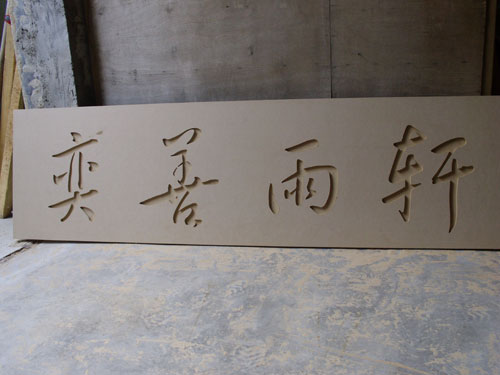 奕善雨轩